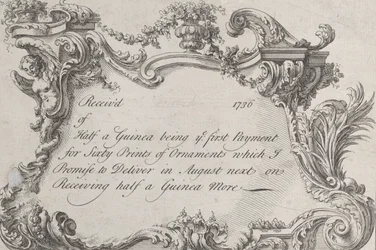 Receiv'd 1736
of
Half a Guinea being ye. first Payment
for Sixty Prints of Ornaments which I
Promise to Deliver in August next on
Receiving half a Guinea More.